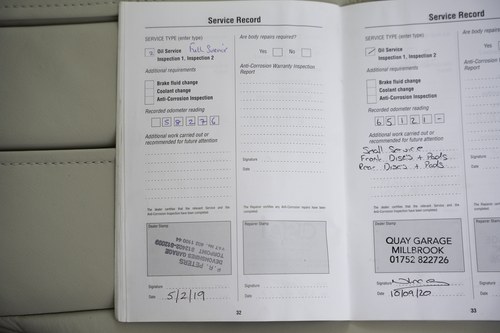 Service Record
SERVICE TYPE (enter type)
Oil Service Full Service
Inspection 1, Inspection 2
Additional requirements
Brake fluid change
Coolant change
Anti-Corrosion Inspection
Recorded odometer reading
58276
Additional work carried out or
recommended for future attention
The dealer certifies that the relevant Service and the
Anti-Corrosion Inspection have been completed.
Dealer Stamp
P.R. PETERS
DEVONSHIRES GARAGE
TORPOINT
Signature
Date 5/2/19
Are body repairs required?
Yes No
Anti-Corrosion Warranty Inspection
Report
Signature
Date
The Repairer certifies any Anti-Corrosion repairs have been
completed.
Repairer Stamp
Signature
Date
32
Service Record
SERVICE TYPE (enter type)
Oil Service
Inspection 1, Inspection 2
Additional requirements
Brake fluid change
Coolant change
Anti-Corrosion Inspection
Recorded odometer reading
65121-
Additional work carried out or
recommended for future attention
Small Service
Front Discs + Pads
Rear Discs + Pads
The dealer certifies that the relevant Service and the
Anti-Corrosion Inspection have been completed.
Dealer Stamp
QUAY GARAGE
MILLBROOK
01752 822726
Signature
Date 18/09/20
Are body repairs
Yes
Anti-Corrosion W
Report
Signature
Date
The Repairer certifies
completed.
Repairer Stamp
Signature
Date
33